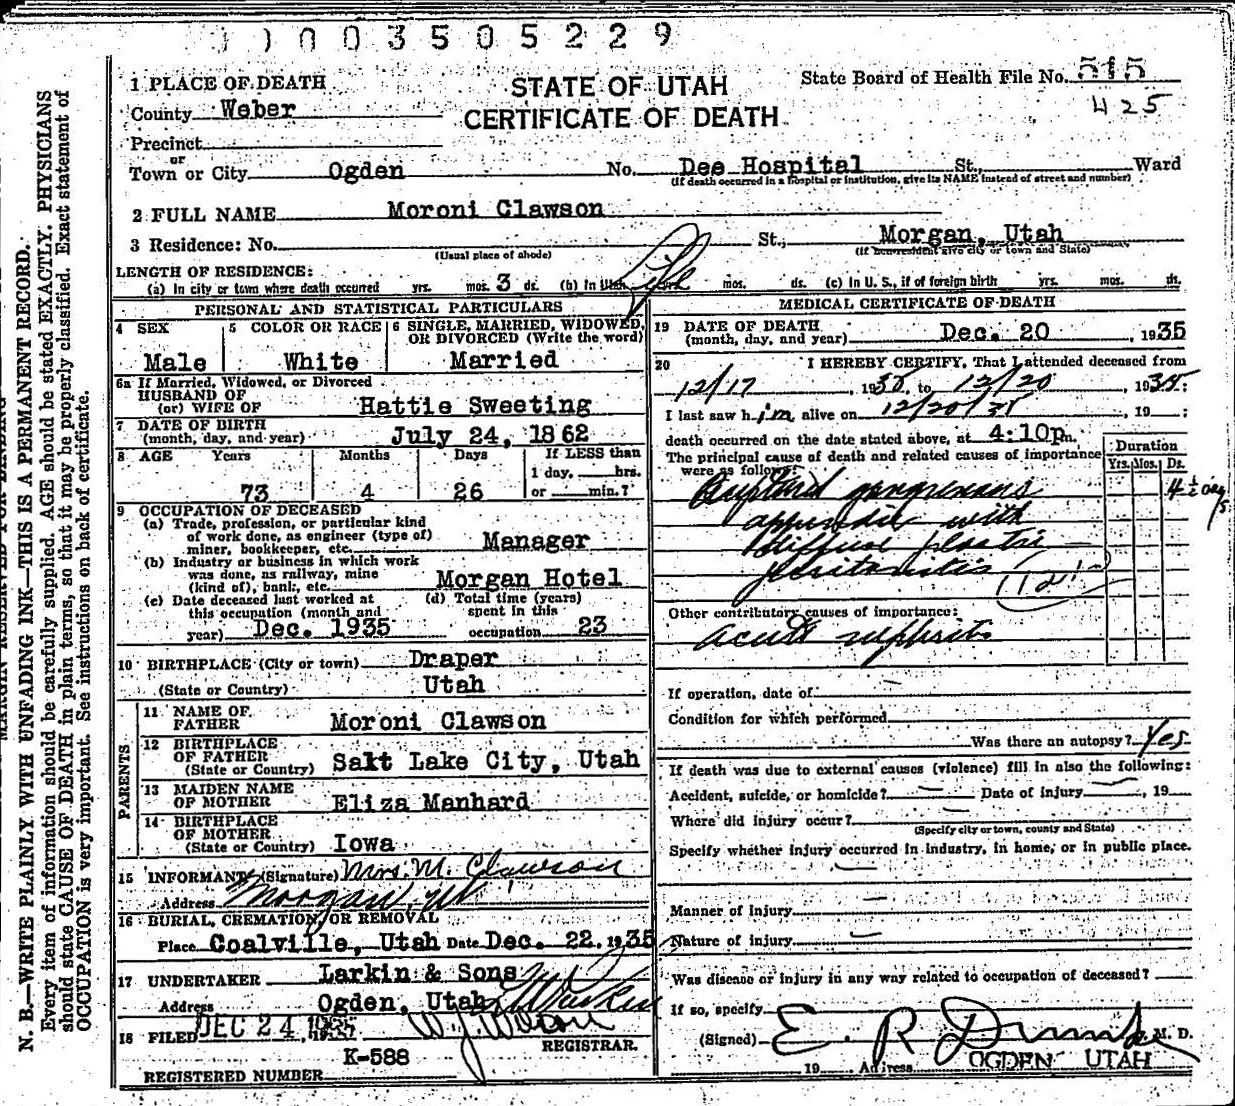 0 0 3 5 0 5 2 2 9
STATE OF UTAH
CERTIFICATE OF DEATH
State Board of Health File No. 515
425
1 PLACE OF DEATH
County Weber
Precinct
or
Town or City Ogden No. Dee Hospital St., Ward
(If death occurred in a hospital or institution, give its NAME instead of street and number)
2 FULL NAME Moroni Clawson
3 Residence: No. St., Morgan, Utah
(Usual place of abode) (If nonresident give city or town and State)
LENGTH OF RESIDENCE:
(a) In city or town where death occurred yrs. mos. 3 ds. (b) In Utah Life mos. ds. (c) In U. S., if of foreign birth yrs. mos. ds.
PERSONAL AND STATISTICAL PARTICULARS
4 SEX 5 COLOR OR RACE 6 SINGLE, MARRIED, WIDOWED, OR DIVORCED (Write the word)
Male White Married
6a If Married, Widowed, or Divorced
HUSBAND OF
(or) WIFE OF Hattie Sweeting
7 DATE OF BIRTH
(month, day, and year) July 24, 1862
8 AGE Years Months Days If LESS than
1 day, hrs.
73 4 26 or min.?
9 OCCUPATION OF DECEASED
(a) Trade, profession, or particular kind
of work done, as engineer (type of)
miner, bookkeeper, etc. Manager
(b) Industry or business in which work
was done, as railway, mine
(kind of), bank, etc. Morgan Hotel
(c) Date deceased last worked at (d) Total time (years)
this occupation (month and spent in this
year) Dec. 1935 occupation 23
10 BIRTHPLACE (City or town) Draper
(State or Country) Utah
PARENTS
11 NAME OF
FATHER Moroni Clawson
12 BIRTHPLACE
OF FATHER
(State or Country) Salt Lake City, Utah
13 MAIDEN NAME
OF MOTHER Eliza Manhard
14 BIRTHPLACE
OF MOTHER
(State or Country) Iowa
15 INFORMANT (Signature) Mrs. M. Clawson
Address Morgan, Ut.
16 BURIAL, CREMATION, OR REMOVAL
Place Coalville, Utah Date Dec. 22, 1935
17 UNDERTAKER Larkin & Sons
Address Ogden, Utah
18 FILED DEC 24 1935
REGISTRAR.
K-588
REGISTERED NUMBER
MEDICAL CERTIFICATE OF DEATH
19 DATE OF DEATH
(month, day, and year) Dec. 20, 1935
20 I HEREBY CERTIFY, That I attended deceased from
12/17, 1935, to 12/20, 1935;
I last saw him alive on 12/20/35, 19 ;
death occurred on the date stated above, at 4:10p m.
The principal cause of death and related causes of importance
were as follows:
Duration
Yrs. Mos. Ds.
Ruptured gangrenous 4½ days
appendix with
diffuse plastic
peritonitis
Other contributory causes of importance:
acute nephritis
If operation, date of
Condition for which performed
Was there an autopsy? Yes
If death was due to external causes (violence) fill in also the following:
Accident, suicide, or homicide? — Date of injury —, 19
Where did injury occur? —
(Specify city or town, county and State)
Specify whether injury occurred in industry, in home, or in public place.
—
Manner of injury —
Nature of injury —
Was disease or injury in any way related to occupation of deceased?
If so, specify
(Signed) E. R. M. D.
19 Address OGDEN UTAH
N. B.—WRITE PLAINLY WITH UNFADING INK—THIS IS A PERMANENT RECORD.
Every item of information should be carefully supplied. AGE should be stated EXACTLY. PHYSICIANS
should state CAUSE OF DEATH in plain terms, so that it may be properly classified. Exact statement of
OCCUPATION is very important. See instructions on back of certificate.